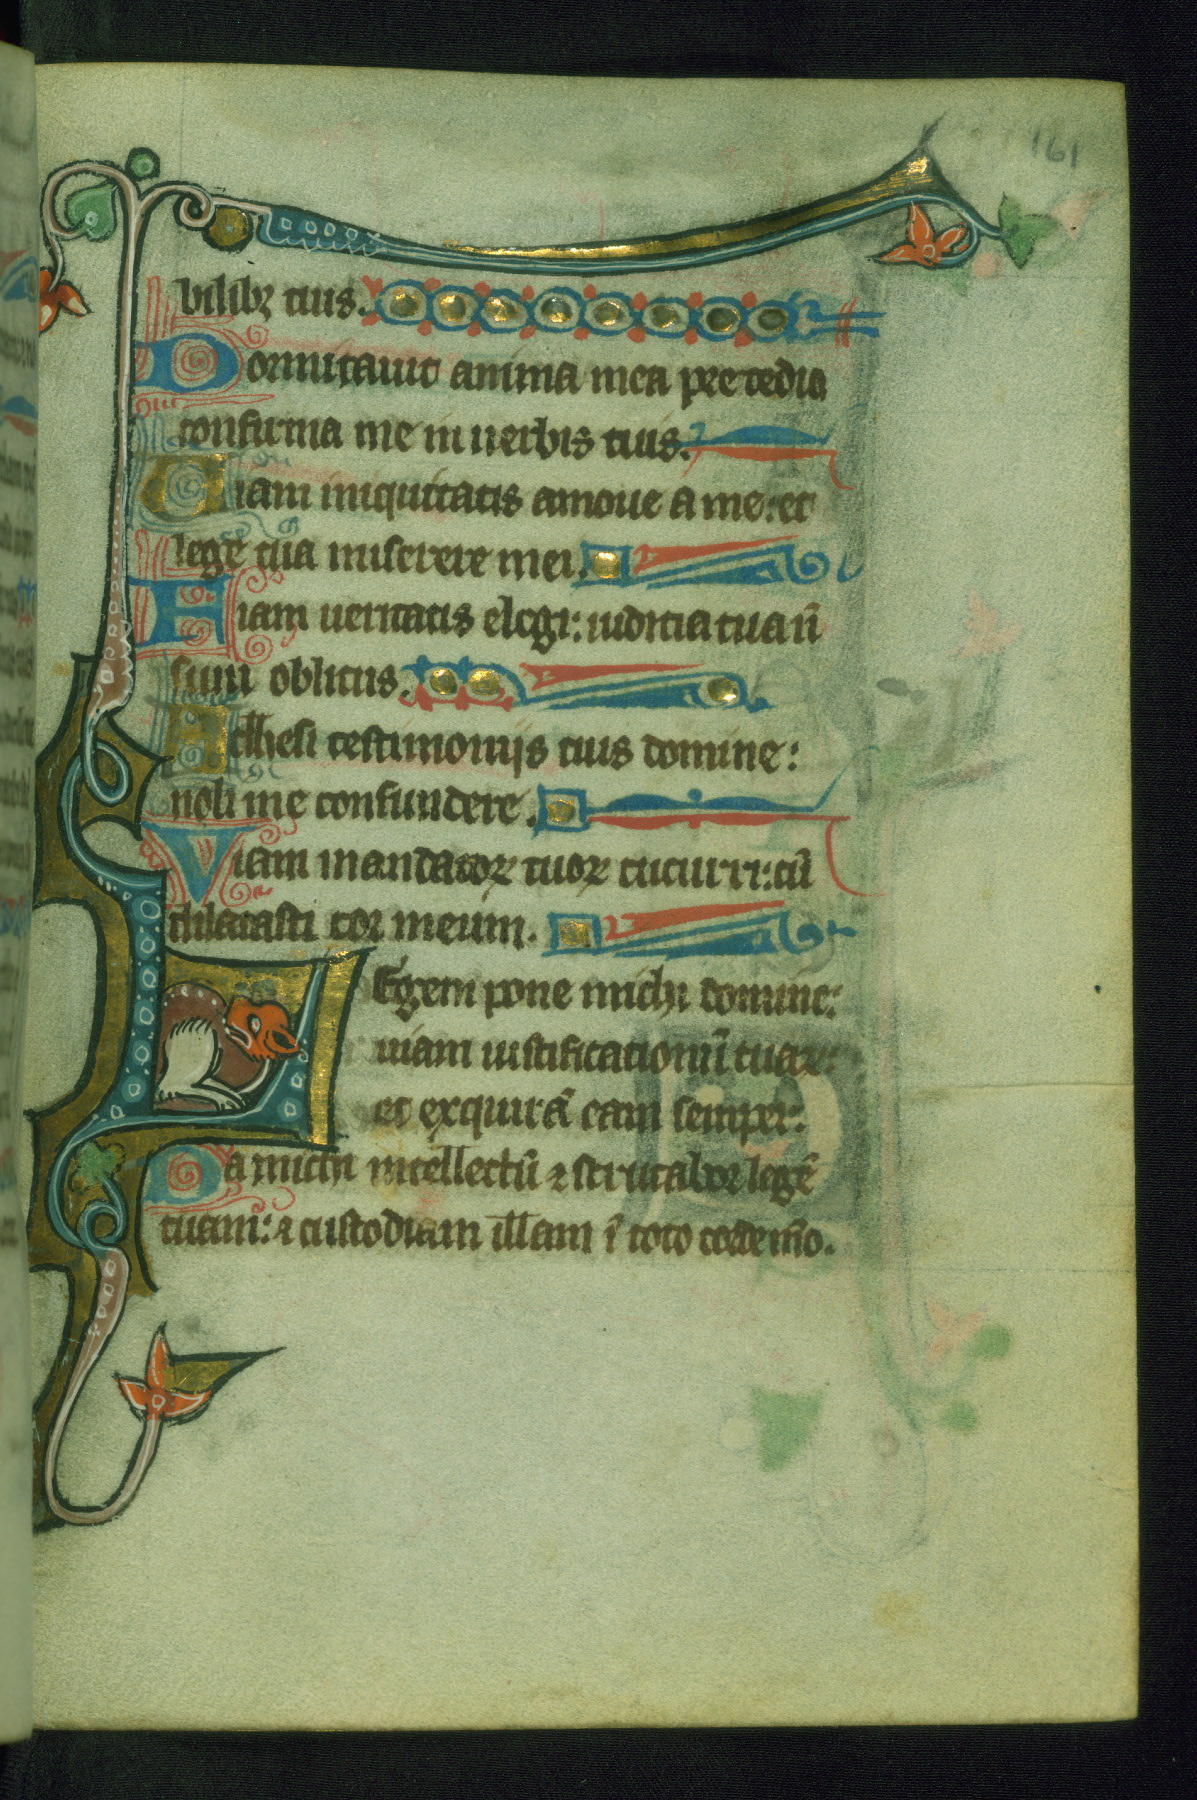 161
bilibꝫ tuis.
Dormitauit anima mea pre tedio
confirma me in uerbis tuis.
Uiam iniquitatis amoue a me: et
lege tua miserere mei.
Uiam ueritatis elegi: iudicia tua nō
sum oblitus.
Adhesi testimonijs tuis domine:
noli me confundere.
Viam mandatoꝝ tuoꝝ cucurri: cū
dilatasti cor meum.
LEgem pone michi domine:
uiam iustificationū tuaꝝ:
et exquirā eam semper:
Da michi intellectū ⁊ scrutabor legē
tuam: ⁊ custodiam illam ī toto corde m̄o.